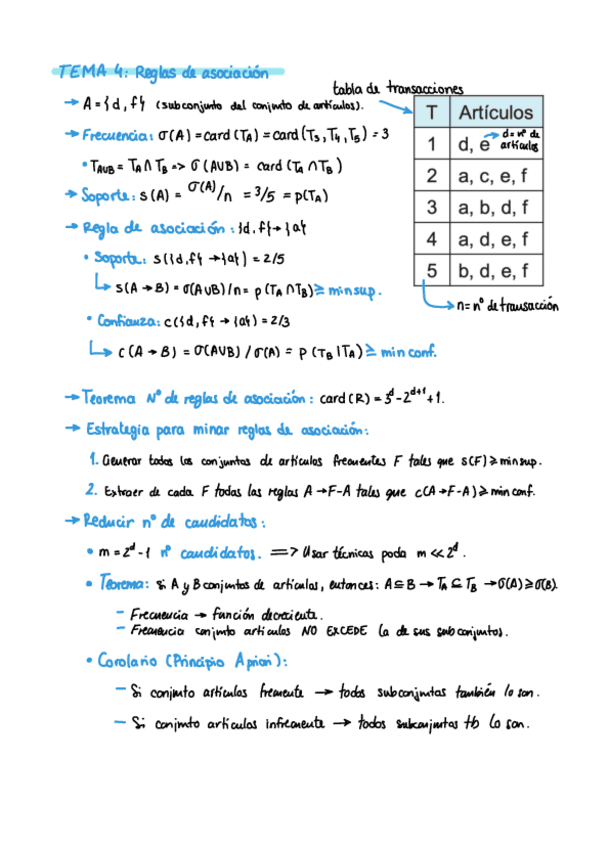 TEMA 4: Reglas de asociación
tabla de transacciones
→ A = {d, f} (subconjunto del conjunto de artículos).
→ Frecuencia: σ(A) = card(T_A) = card(T3, T4, T5) = 3
• T_AUB = T_A ∩ T_B => σ(AUB) = card(T_A ∩ T_B)
→ Soporte: s(A) = σ(A)/n = 3/5 = p(T_A)
T Artículos
1 d, e → d = nº de artículos
2 a, c, e, f
3 a, b, d, f
4 a, d, e, f
5 b, d, e, f
n = nº de transacción
→ Regla de asociación: {d, f} → {a}
• Soporte: s({d, f} → {a}) = 2/5
↳ s(A → B) = σ(AUB)/n = p(T_A ∩ T_B) ≥ minsup.
• Confianza: c({d, f} → {a}) = 2/3
↳ c(A → B) = σ(AUB) / σ(A) = P(T_B | T_A) ≥ minconf.
→ Teorema Nº de reglas de asociación: card(R) = 3^d - 2^(d+1) + 1.
→ Estrategia para minar reglas de asociación:
1. Generar todos los conjuntos de artículos frecuentes F tales que s(F) ≥ minsup.
2. Extraer de cada F todas las reglas A → F-A tales que c(A → F-A) ≥ minconf.
→ Reducir nº de candidatos:
• m = 2^d - 1 nº candidatos. => Usar técnicas poda m << 2^d.
• Teorema: si A y B conjuntos de artículos, entonces: A ⊆ B → T_A ⊆ T_B → σ(A) ≥ σ(B).
- Frecuencia → función decreciente.
- Frecuencia conjunto artículos NO EXCEDE la de sus subconjuntos.
• Corolario (Principio Apriori):
- Si conjunto artículos frecuente → todos subconjuntos también lo son.
- Si conjunto artículos infrecuente → todos subconjuntos tb lo son.